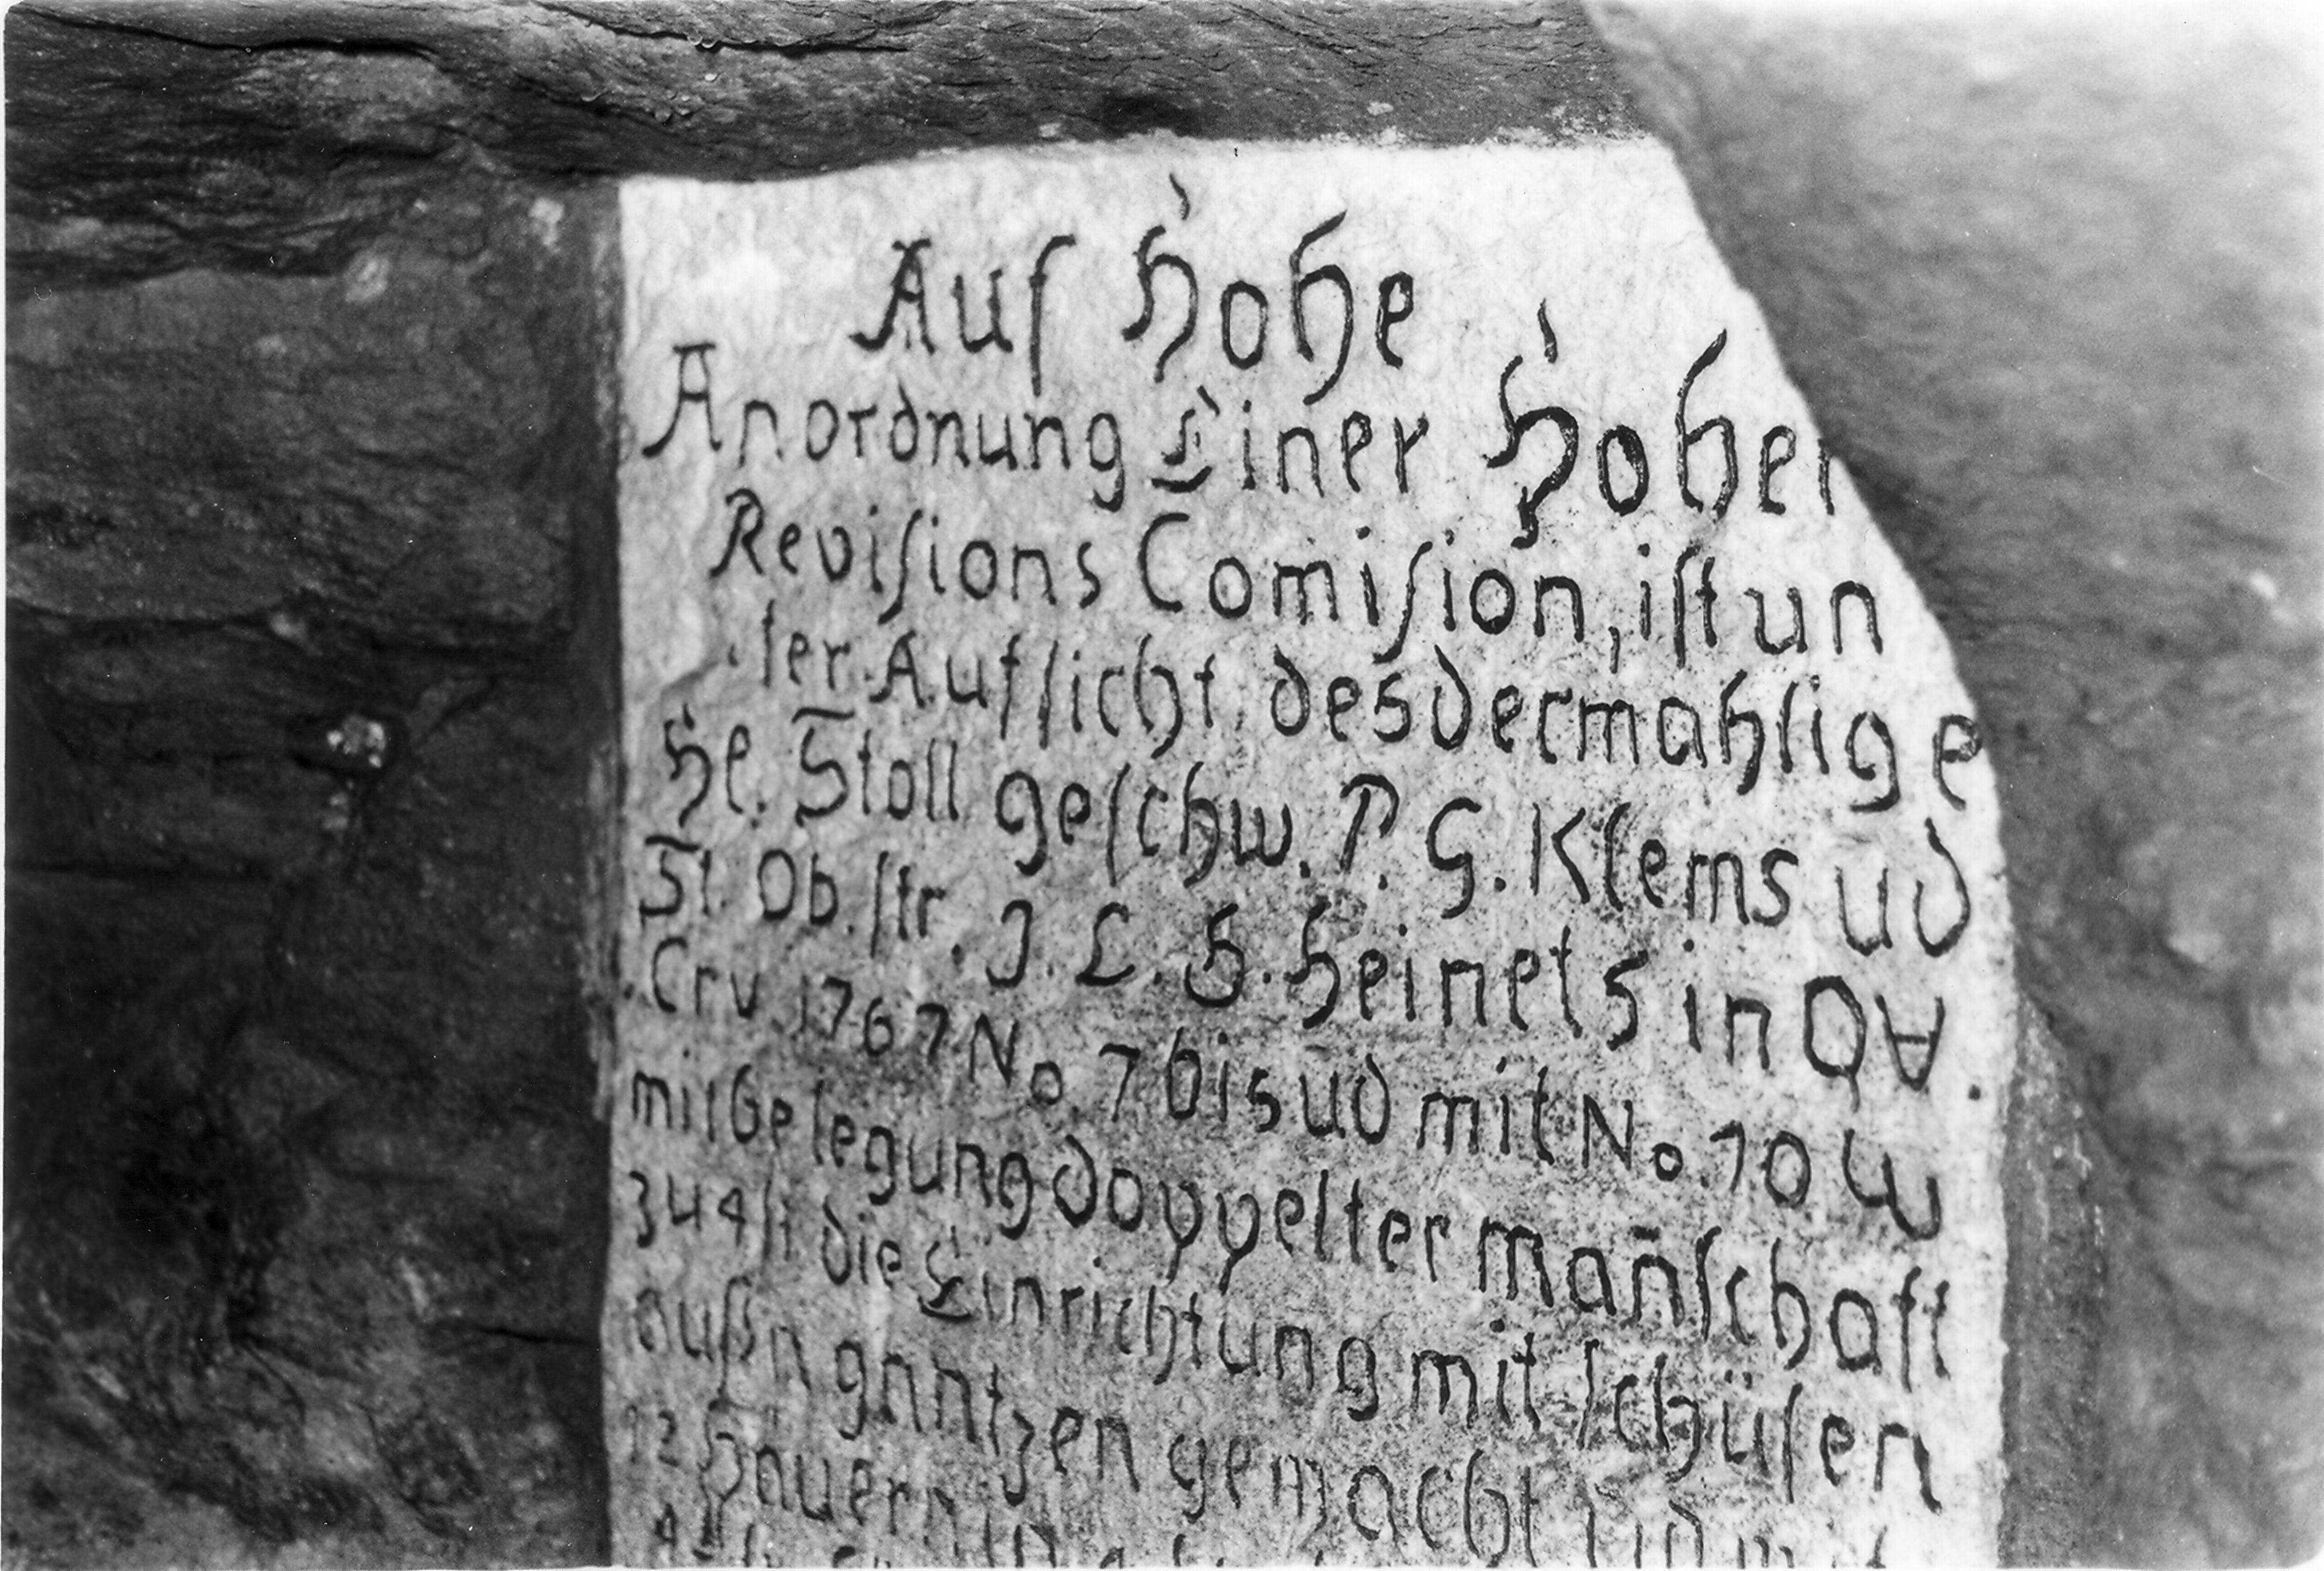 Auf Hohe
Anordnung Einer Hoher
Reviſions Comiſion, iſt un
ter Aufſicht des dermahlige
He. Stoll geſchw. P. G. Klems ud
St. Ob. ſtr. J. L. H. Heinels in QA.
Crv 1767 No 7 bis ud mit No. 10 W
mit Belegung doppelter mañſchaft
3 u 4 ſt die Einrichtung mit ſchüſen
außn gantzen gemacht ud mit
12 Hauern